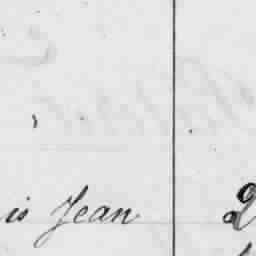 is Jean 2